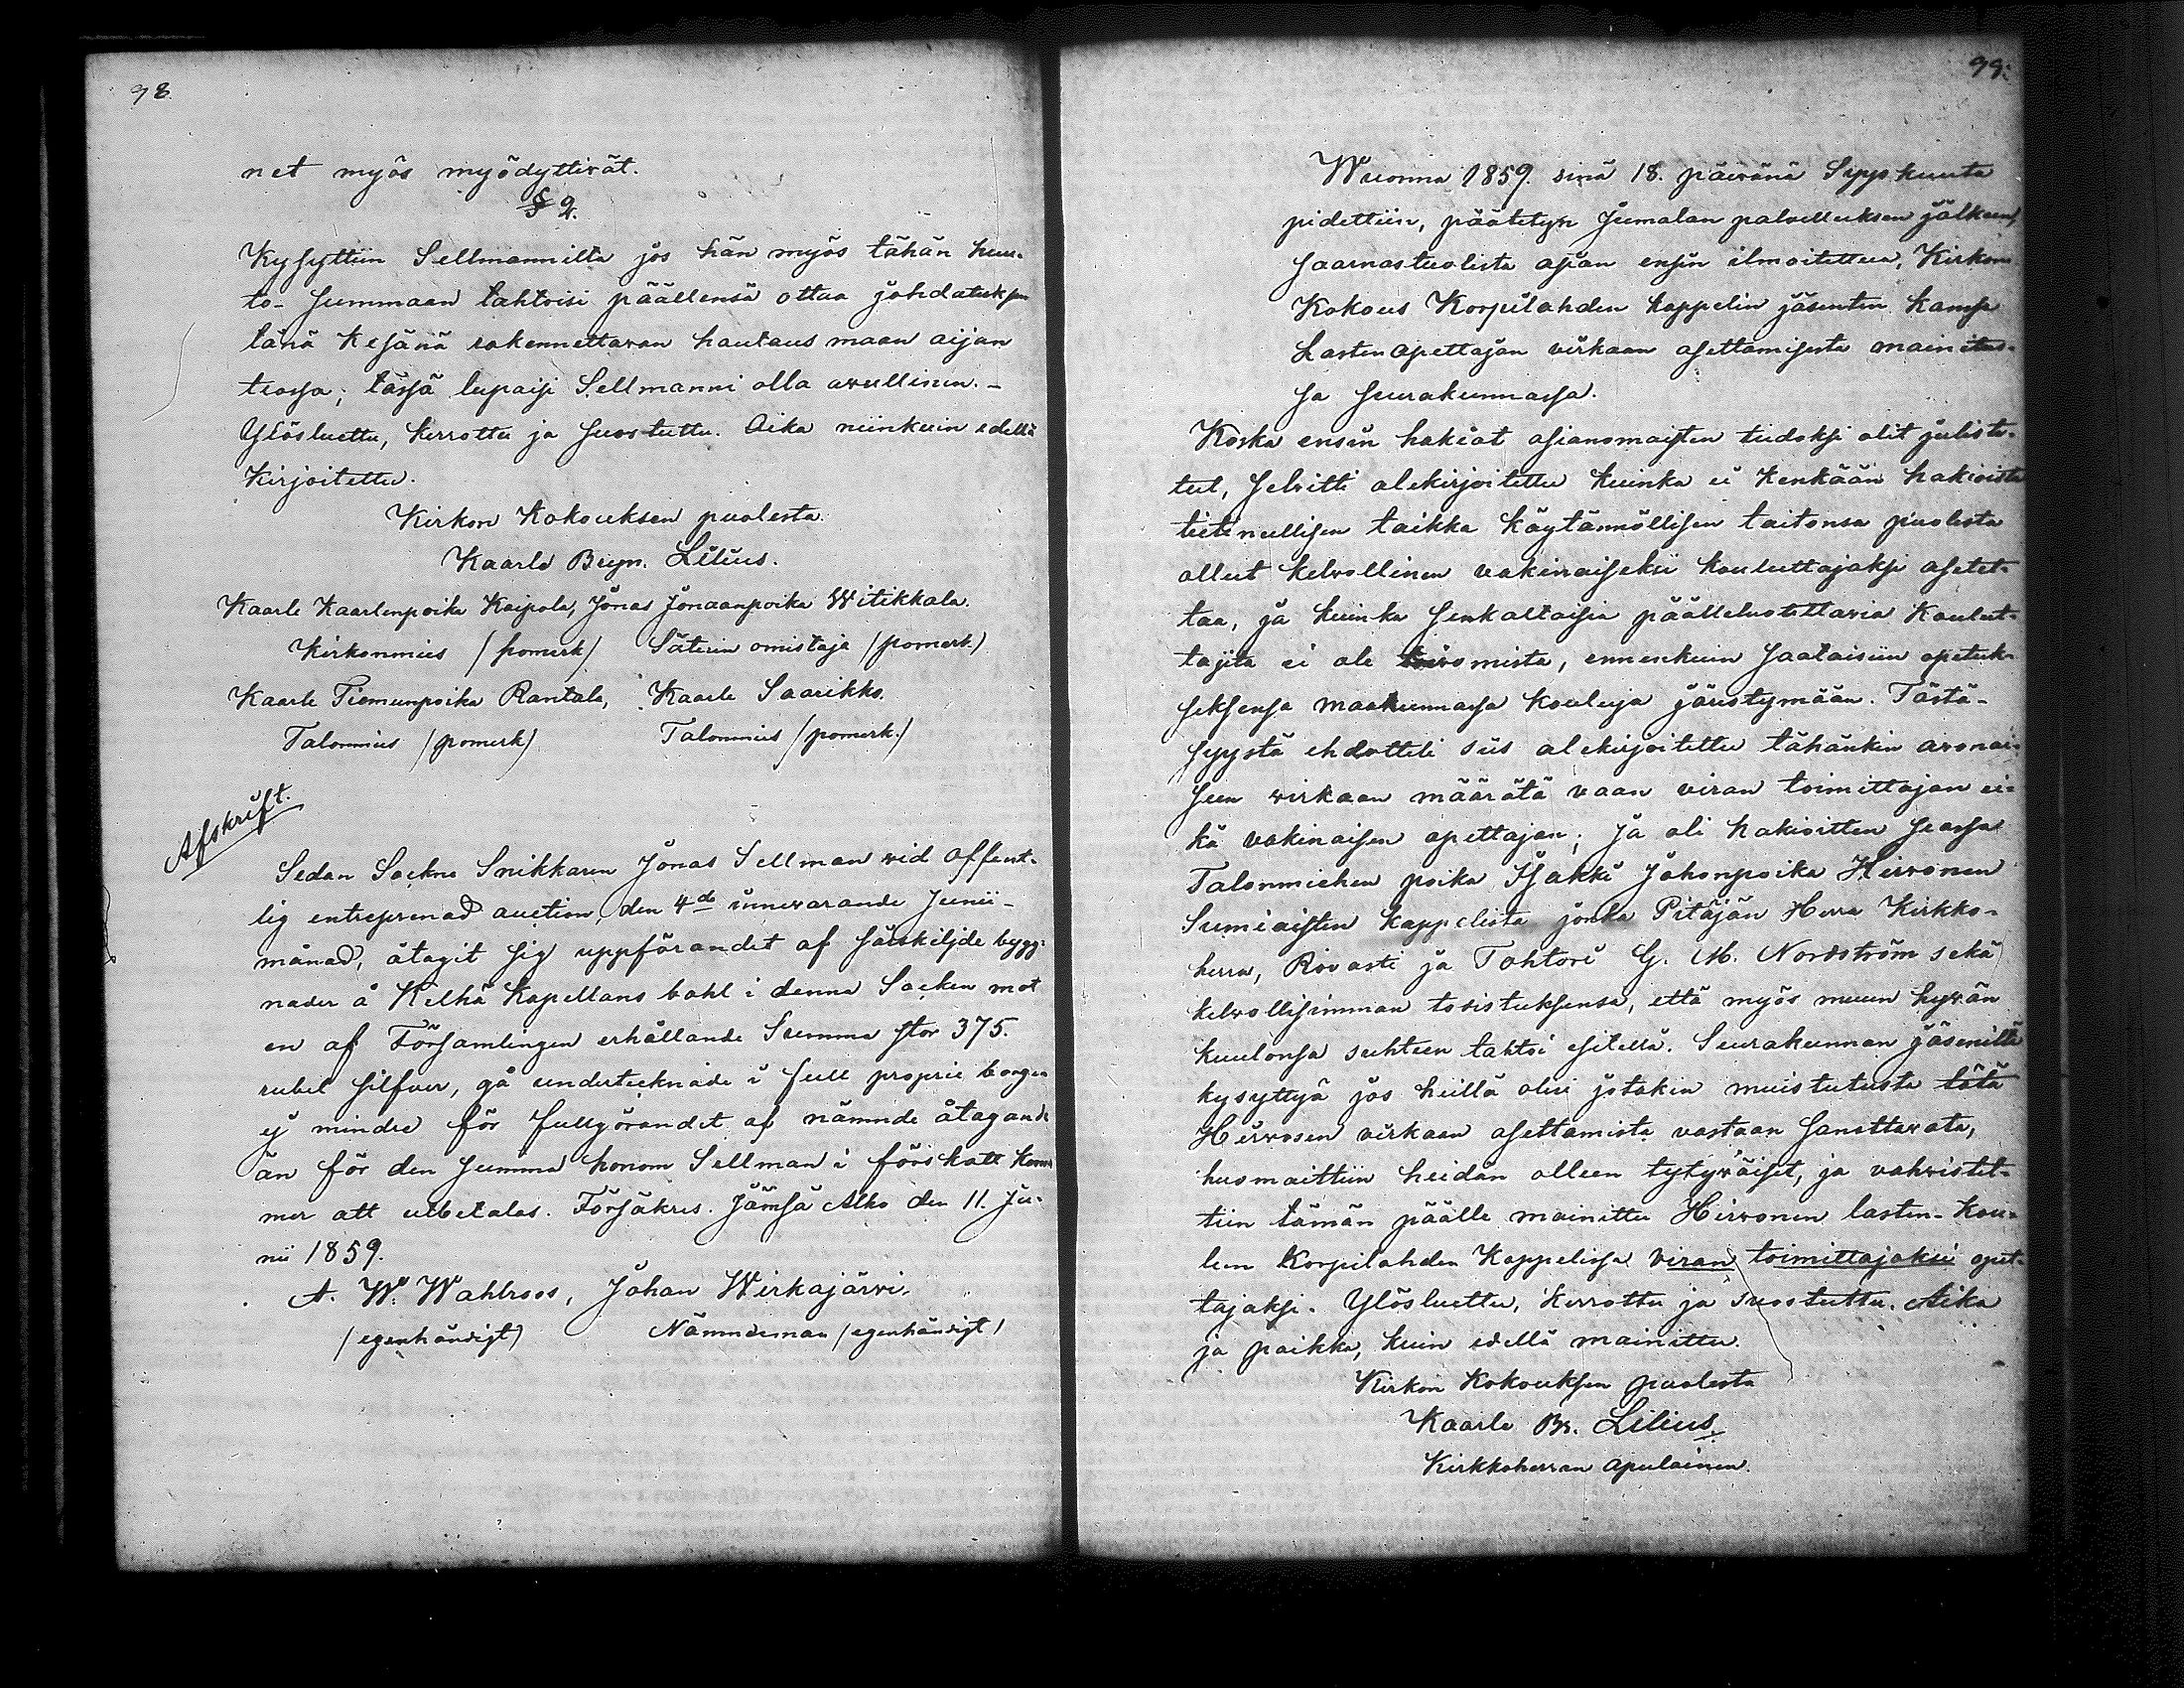 98.
net myös myödyttivät.
§ 2.
Kysyttiin Sellmannilta jos hän myös tähän huu-
to-summaan tahtoisi päällensä ottaa johdatuksen
tänä kesänä rakennettavan hautausmaan aijan
teossa; tässä lupaisi Sellmanni olla avullinen. -
Ylösluettu, kerrottu ja suostuttu. Aika niinkuin edellä
Kirjoitettu.
Kirkon Kokouksen puolesta.
Kaarlo Benj. Lilius.
Kaarle Kaarlenpoika Kaipola, Jonas Jonaanpoika Witikkala.
Kirkonmies /pomerk/ Säterin omistaja /pomerk./
Kaarle Tiemunpoika Rantala, Kaarle Saarikko.
Talonmies /pomerk/ Talonmies /pomerk./
Afskrift.
Sedan Sockne Snikkaren Jonas Sellman vid offent-
lig entreprenad auction, den 4de innevarande Junii-
månad, åtagit sig uppförandet af särskiljde bygg-
nader å Kelhä Kapellans bohl i denna Socken mot
en af Församlingen erhållande Summa stor 375.
rubel silfver, gå undertecknade i full proprie borgen
ej mindre för fullgörandet af nämnde åtagande
än för den summa honom Sellman i förskott kom-
mer att utbetalas. Försäkres. Jämsä Alho den 11. Ju-
nii 1859.
A. W. Wahlroos, Johan Wirkajärvi,
/egenhändigt/ Nämndeman /egenhändigt/
99.
Wuonna 1859. sinä 18. päivänä Syyskuuta
pidettiin, päätetyn Jumalan palvelluksen jälkeen,
saarnastuolista asian ensin ilmoitettua, Kirkon
Kokous Korpilahden kappelin jäsenten kanssa
Lasten opettajan virkaan asettamisesta mainitus-
sa seurakunnassa.
Koska ensin hakiat asianomaisten tiedoksi olit juliste-
tut, selvitti alekirjoitettu kuinka ei kenkään hakioista
tietinullisen taikka käytännöllisen taitonsa puolesta
ollut kelvollinen vakinaiseksi kouluttajaksi asetet-
taa, ja kuinka senkaltaisia päälleluotettavia koulut-
tajita ei ole toivomista, ennenkuin saataisiin opetuk-
seksensa maakunnassa kouluja järjestymään. Tästä-
syystä ehdotteli siis alekirjoitettu tähänkin avonai-
seen virkaan määrätä vaan viran toimittajan ei-
kä vakinaisen opettajan; ja oli hakioitten seassa
Talonmiehen poika Isakki Johonpoika Hirvonen
Sumiaisten kappelista jonka Pitäjän Herra Kirkko-
herra, Rovasti ja Tohtori G. M. Nordström sekä
kelvollisimman tosistuksensa, että myös muun hyvän
kuulonsa suhteen tahtoi esitellä. Seurakunnan jäsenillä
kysyttyä jos heillä olisi jotakin muistutusta tätä
Hirvosen virkaan asettamista vastaan sanottavata,
huomaittiin heidän olleen tytyväiset, ja vahvistet-
tiin tämän päälle mainittu Hirvonen lasten-kou-
lun Korpilahden Kappelissa viran toimittajaksi opet-
tajaksi. Ylösluettu, kerrottu ja suostuttu. Aika
ja paikka, kuin edellä mainittu.
Kirkon Kokouksen puolesta
Kaarlo Br. Lilius.
Kirkkoherran apulainen.